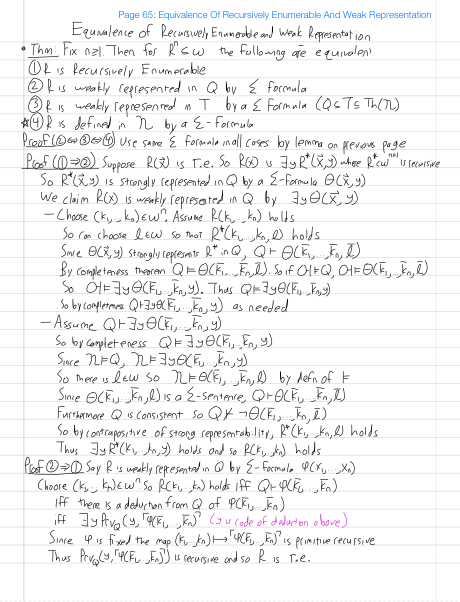 Page 65: Equivalence Of Recursively Enumerable And Weak Representation
Equivalence of Recursively Enumerable and Weak Representation
• Thm Fix n≥1. Then for R^n ⊆ ω the following are equivalent
① R is Recursively Enumerable
② R is weakly represented in Q by Σ formula
③ R is weakly represented in T by a Σ formula (Q⊆T⊆Th(𝔑))
★④ R is defined in 𝔑 by a Σ-formula
Proof (②⇔③⇔④) Use same Σ formula in all cases by lemma on previous page
Proof (①⇒②) Suppose R(x⃗) is r.e. So R(x) is ∃yR*(x⃗,y) where R*⊂ω^{n+1} is recursive
So R*(x⃗,y) is strongly represented in Q by a Σ-formula Θ(x⃗,y)
We claim R(x) is weakly represented in Q by ∃yΘ(x⃗,y)
– Choose (k₁,..,kₙ)∈ωⁿ. Assume R(k₁,..,kₙ) holds
So can choose l∈ω so that R*(k₁,..,kₙ,l) holds
Since Θ(x⃗,y) strongly represents R* in Q, Q⊢Θ(k̄₁,..,k̄ₙ,l̄)
By completeness theorem Q⊨Θ(k̄₁,..,k̄ₙ,l̄). So if 𝔄⊨Q, 𝔄⊨Θ(k̄₁,..,k̄ₙ,l̄)
So 𝔄⊨∃yΘ(k̄₁,..,k̄ₙ,y). Thus Q⊨∃yΘ(k̄₁,..,k̄ₙ,y)
So by completeness Q⊢∃yΘ(k̄₁,..,k̄ₙ,y) as needed
– Assume Q⊢∃yΘ(k̄₁,..,k̄ₙ,y)
So by completeness Q⊨∃yΘ(k̄₁,..,k̄ₙ,y)
Since 𝔑⊨Q, 𝔑⊨∃yΘ(k̄₁,..,k̄ₙ,y)
So there is l∈ω so 𝔑⊨Θ(k̄₁,..,k̄ₙ,l) by defn of ⊨
Since Θ(k̄₁,..,k̄ₙ,l) is a Σ-sentence, Q⊢Θ(k̄₁,..,k̄ₙ,l̄)
Furthermore Q is consistent so Q⊬¬Θ(k̄₁,..,k̄ₙ,l̄)
So by contrapositive of strong representability, R*(k₁,..,kₙ,l) holds
Thus ∃yR*(k₁,..,kₙ,y) holds and so R(k₁,..,kₙ) holds
Proof ②⇒① Say R is weakly represented in Q by Σ-formula φ(x₁,..,xₙ)
Choose (k₁,..,kₙ)∈ωⁿ So R(k₁,..,kₙ) holds iff Q⊢φ(k̄₁,..,k̄ₙ)
Iff there is a deduction from Q of φ(k̄₁,..,k̄ₙ)
iff ∃yPrv_Q(y,⌜φ(k̄₁,..,k̄ₙ)⌝ (y is code of deduction above)
Since φ is fixed the map (k₁,..,kₙ)↦⌜φ(k̄₁,..,k̄ₙ)⌝ is primitive recursive
Thus Prv_Q(y,⌜φ(k̄₁,..,k̄ₙ)⌝) is recursive and so R is r.e.